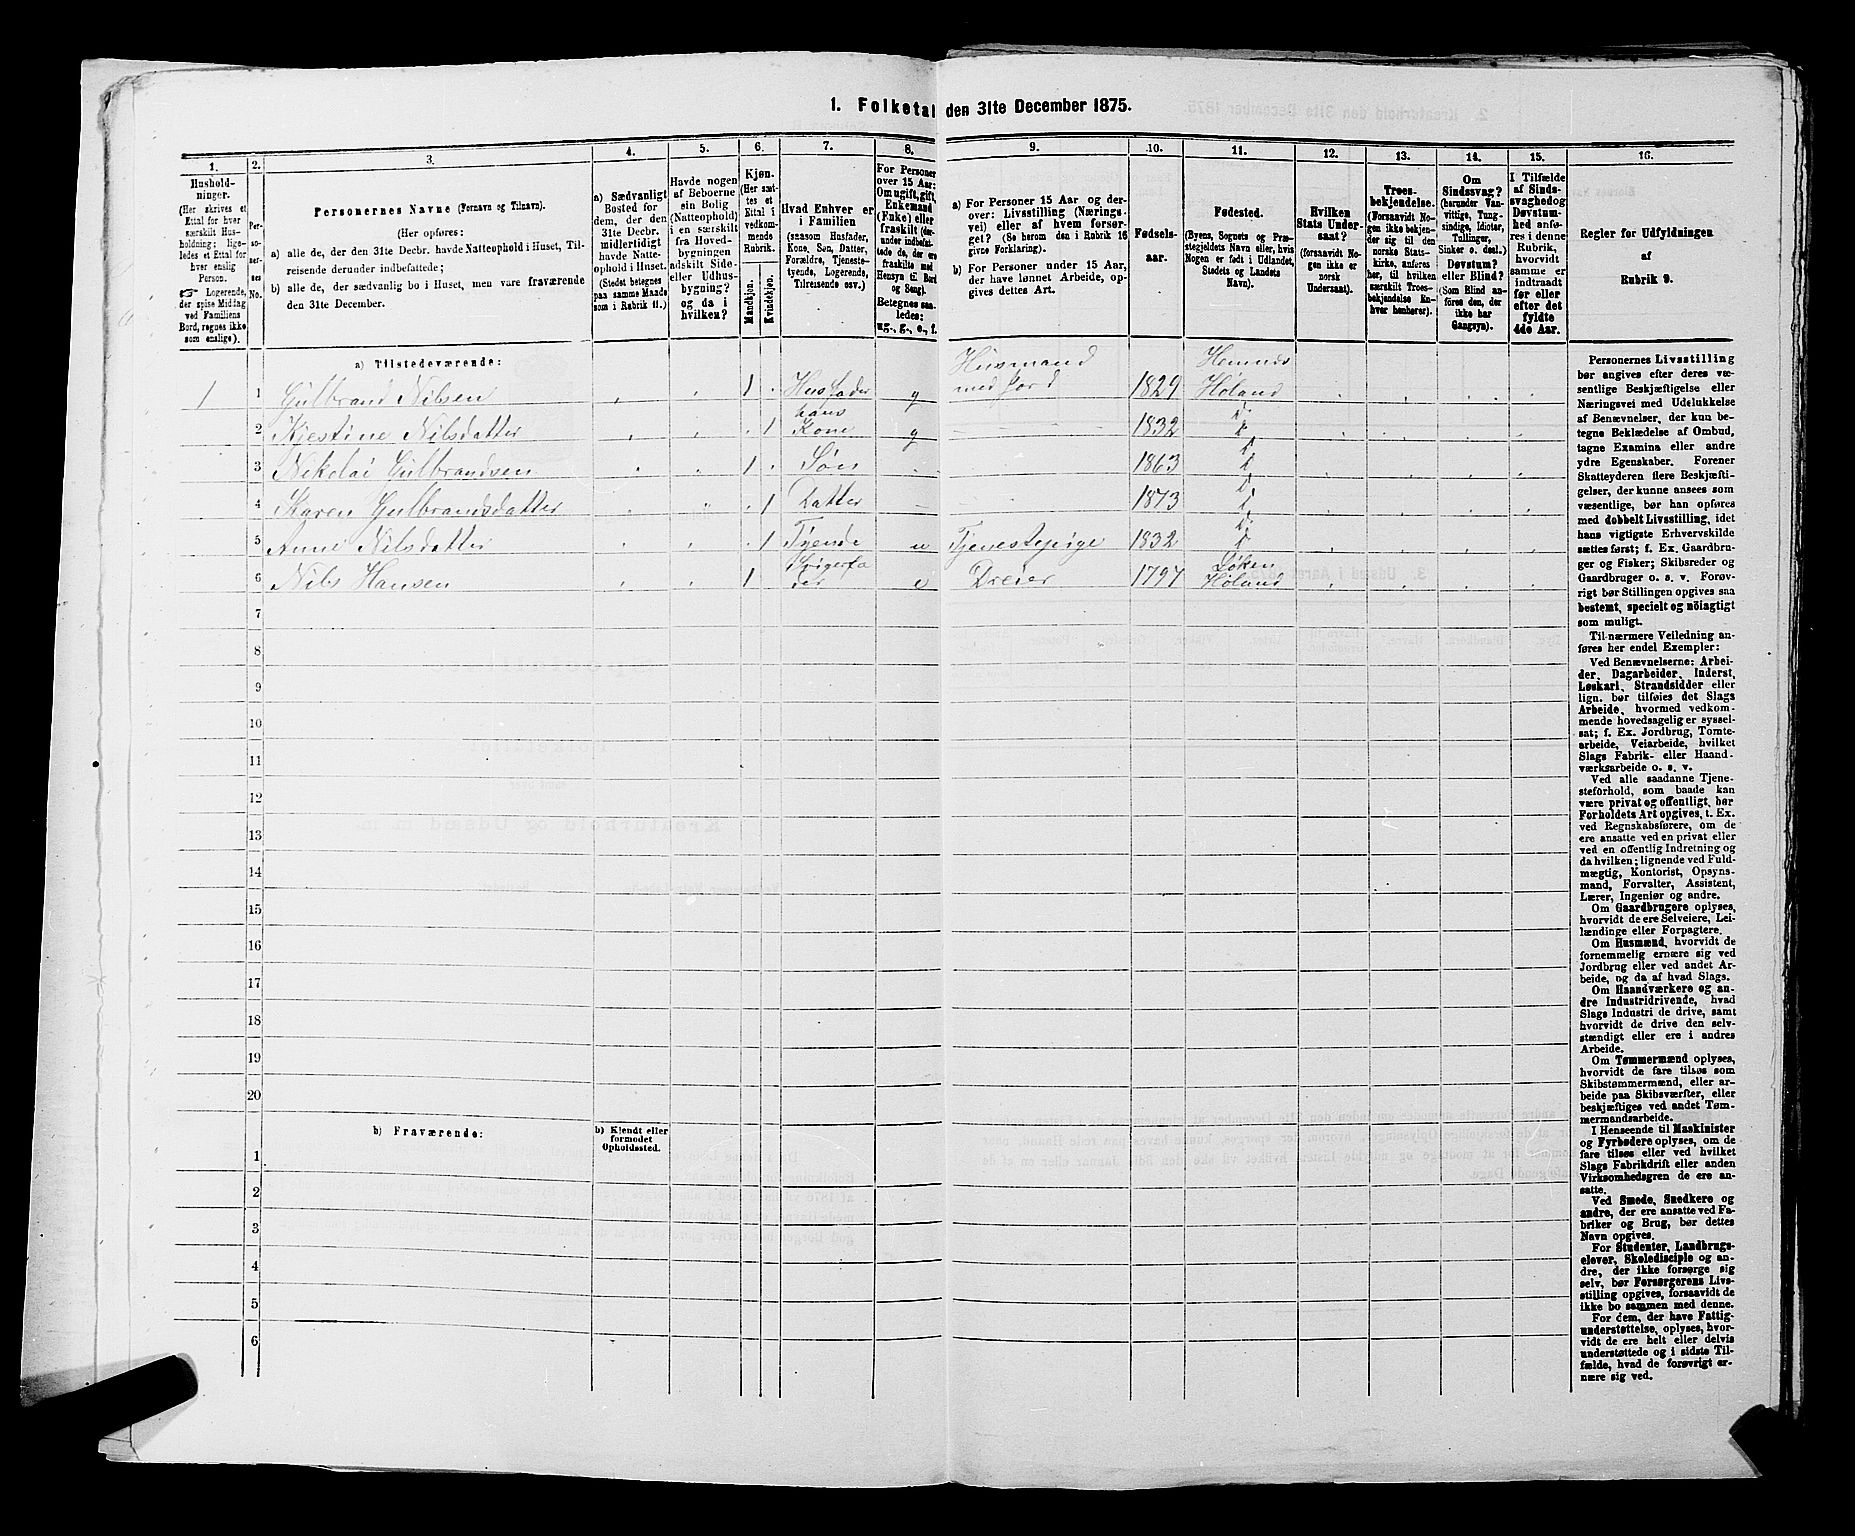 1. Folketal den 31te December 1875.
1.
Hushold-
ninger.
(Her skrives et
Ettal for hver
særskilt Hus-
holdning; lige-
ledes et Ettal for
hver enslig
Person.
☞ Logerende,
der spise Middag
ved Familiens
Bord, regnes ikke
som enslige).
2.
Per-
so-
ner-
nes
No.
3.
Personernes Navne (Fornavn og Tilnavn).
(Her opføres:
a) alle de, der den 31te Decbr. havde Natteophold i Huset, Til-
reisende derunder indbefattede;
b) alle de, der sædvanlig bo i Huset, men vare fraværende
den 31te December.
4.
a) Sædvanligt
Bosted for
dem, der den
31te Decbr.
midlertidigt
havde Natte-
ophold i Huset.
(Stedet betegnes
paa samme Maade
som i Rubrik 11.)
5.
Havde nogen
af Beboerne
ein Bolig
(Natteophold)
i en særskilt
fra Hoved-
bygningen
adskilt Side-
eller Udhus-
bygning?
og da i
hvilken?
6.
Kjøn.
(Her sæt-
tes et
Ettal i
vedkom-
mende
Rubrik.
Mandkjøn.
Kvindekjøn.
7.
Hvad Enhver er
i Familien
(saasom Husfader,
Kone, Søn, Datter,
Forældre, Tjeneste-
tyende, Logerende,
Tilreisende osv.)
8.
For Personer
over 15 Aar:
Om ugift, gift,
Enkemand
(Enke) eller
fraskilt (her-
under indbefat-
tede de, der ere
fraskilte med
Hensyn til Bord
og Seng).
Betegnes saa-
ledes:
ug., g., e., f.
9.
a) For Personer 15 Aar og der-
over: Livsstilling (Nærings-
vei) eller af hvem forsør-
get? (Se herom den i Rubrik 16
givne Forklaring).
b) For Personer under 15 Aar,
der have lønnet Arbeide, op-
gives dettes Art.
10.
Fødsels-
aar.
11.
Fødested.
(Byens, Sognets og Præ-
stegjeldets Navn eller, hvis
Nogen er født i Udlandet,
Stedets og Landets
Navn).
12.
Hvilken
Stats Under-
saat?
(forsaavidt No-
gen ikke er
norsk
Undersaat).
13.
Troes-
bekjendelse.
(Forsaavidt No-
gen ikke bekjen-
der sig til den
norske Stats-
kirke, anføres
her, til hvilken
særskilt Troes-
bekjendelse En-
hver henhører).
14.
Om
Sindssvag?
(herunder Van-
vittige, Tung-
sindige, Idioter,
Tullinger,
Sinker o. desl.)
Døvstum?
eller Blind?
(Som Blind an-
føres den, der
ikke har
Gangsyn).
15.
I Tilfælde
af Sinds-
svaghed og
Døvstum-
hed anfø-
res i denne
Rubrik,
hvorvidt
samme er
indtraadt
før eller
efter det
fyldte
4de Aar.
16.
Regler for Udfyldningen
af
Rubrik 9.
a) Tilstedeværende:
1 1 Gulbrand Nilsen 1 Husfader g Husmand med Jord 1829 Hemnes Høland
2 Kjestine Nilsdatter 1 hans Kone g 1832
3 Nikolai Gulbrandsen 1 Søn 1863
4 Karen Gulbrandsdatter 1 Datter 1873
5 Anne Nilsdatter 1 Tyende u Tjenestepige 1832
6 Nils Hansen 1 e Dreier 1797 Løken Høland
7
8
9
10
11
12
13
14
15
16
17
18
19
20
b) Fraværende:
b) Kjendt eller
formodet
Opholdssted.
1
2
3
4
5
6
Personernes Livsstilling
bør angives efter deres væ-
sentlige Beskjæftigelse eller
Næringsvei med Udelukkelse
af Benævnelser, der kun be-
tegne Beklædelse af Ombud,
tagne Examina eller andre
ydre Egenskaber. Forener
Skatteyderen flere Beskjæfti-
gelser, der kunne ansees som
væsentlige, bør han opføres
med dobbelt Livsstilling, idet
hans vigtigste Erhvervskilde
sættes først; f. Ex. Gaardbru-
ger og Fisker; Skibsreder og
Gaardbruger o. s. v. Forøv-
rigt bør Stillingen opgives saa
bestemt, specielt og nöiagtigt
som muligt.
Til nærmere Veiledning an-
føres her endel Exempler:
Ved Benævnelserne: Arbei-
der, Dagarbeider, Inderst,
Løskarl, Strandsidder eller
lign. bør tilføies det Slags
Arbeide, hvormed vedkom-
mende hovedsagelig er syssel-
sat; f. Ex. Jordbrug, Tomte-
arbeide, Veiarbeide, hvilket
Slags Fabrik- eller Haand-
værksarbeide o. s. v.
Ved alle saadanne Tjene-
steforhold, som baade kan
være privat og offentligt, bør
Forholdets Art opgives, t. Ex.
ved Regnskabsførere, om de
ere ansatte ved en privat eller
ved en offentlig Indretning og
da hvilken; lignende ved Fuld-
mægtig, Kontorist, Opsyns-
mand, Forvalter, Assistent,
Lærer, Ingeniør og andre.
Om Gaardbrugere oplyses,
hvorvidt de ere Selveiere, Lei-
lændinge eller Forpagtere.
Om Husmænd, hvorvidt de
fornemmelig ernære sig ved
Jordbrug eller ved andet Ar-
beide, og da af hvad Slags.
Om Haandværkere og an-
dre Industridrivende, hvad
Slags Industri de drive, samt
hvorvidt de drive den selv-
stændigt eller ere i andres
Arbeide.
Om Tømmermænd oplyses,
hvorvidt de fare tilsøs som
Skibstømmermænd, eller ar-
beide paa Skibsværfter, eller
beskjæftiges ved andet Tøm-
mermandsarbeide.
I Henseende til Maskinister
og Fyrbødere oplyses, om de
fare tilsøs eller ved hvilket
Slags Fabrikdrift eller anden
Virksomhedsgren de ere an-
satte.
Ved Smede, Snedkere og
andre, der ere ansatte ved Fa-
briker og Brug, bør dettes
Navn opgives.
For Studenter, Landbrugs-
elever, Skoledisciple og an-
dre, der ikke forsørge sig
selv, bør Forsørgerens Livs-
stilling opgives, forsaavidt de
ikke bo sammen med denne.
For dem, der have Fattig-
understøttelse, oplyses, hvor-
vidt de ere helt eller delvis
understøttede og i sidste Til-
fælde, hvad de forøvrigt er-
nære sig ved.